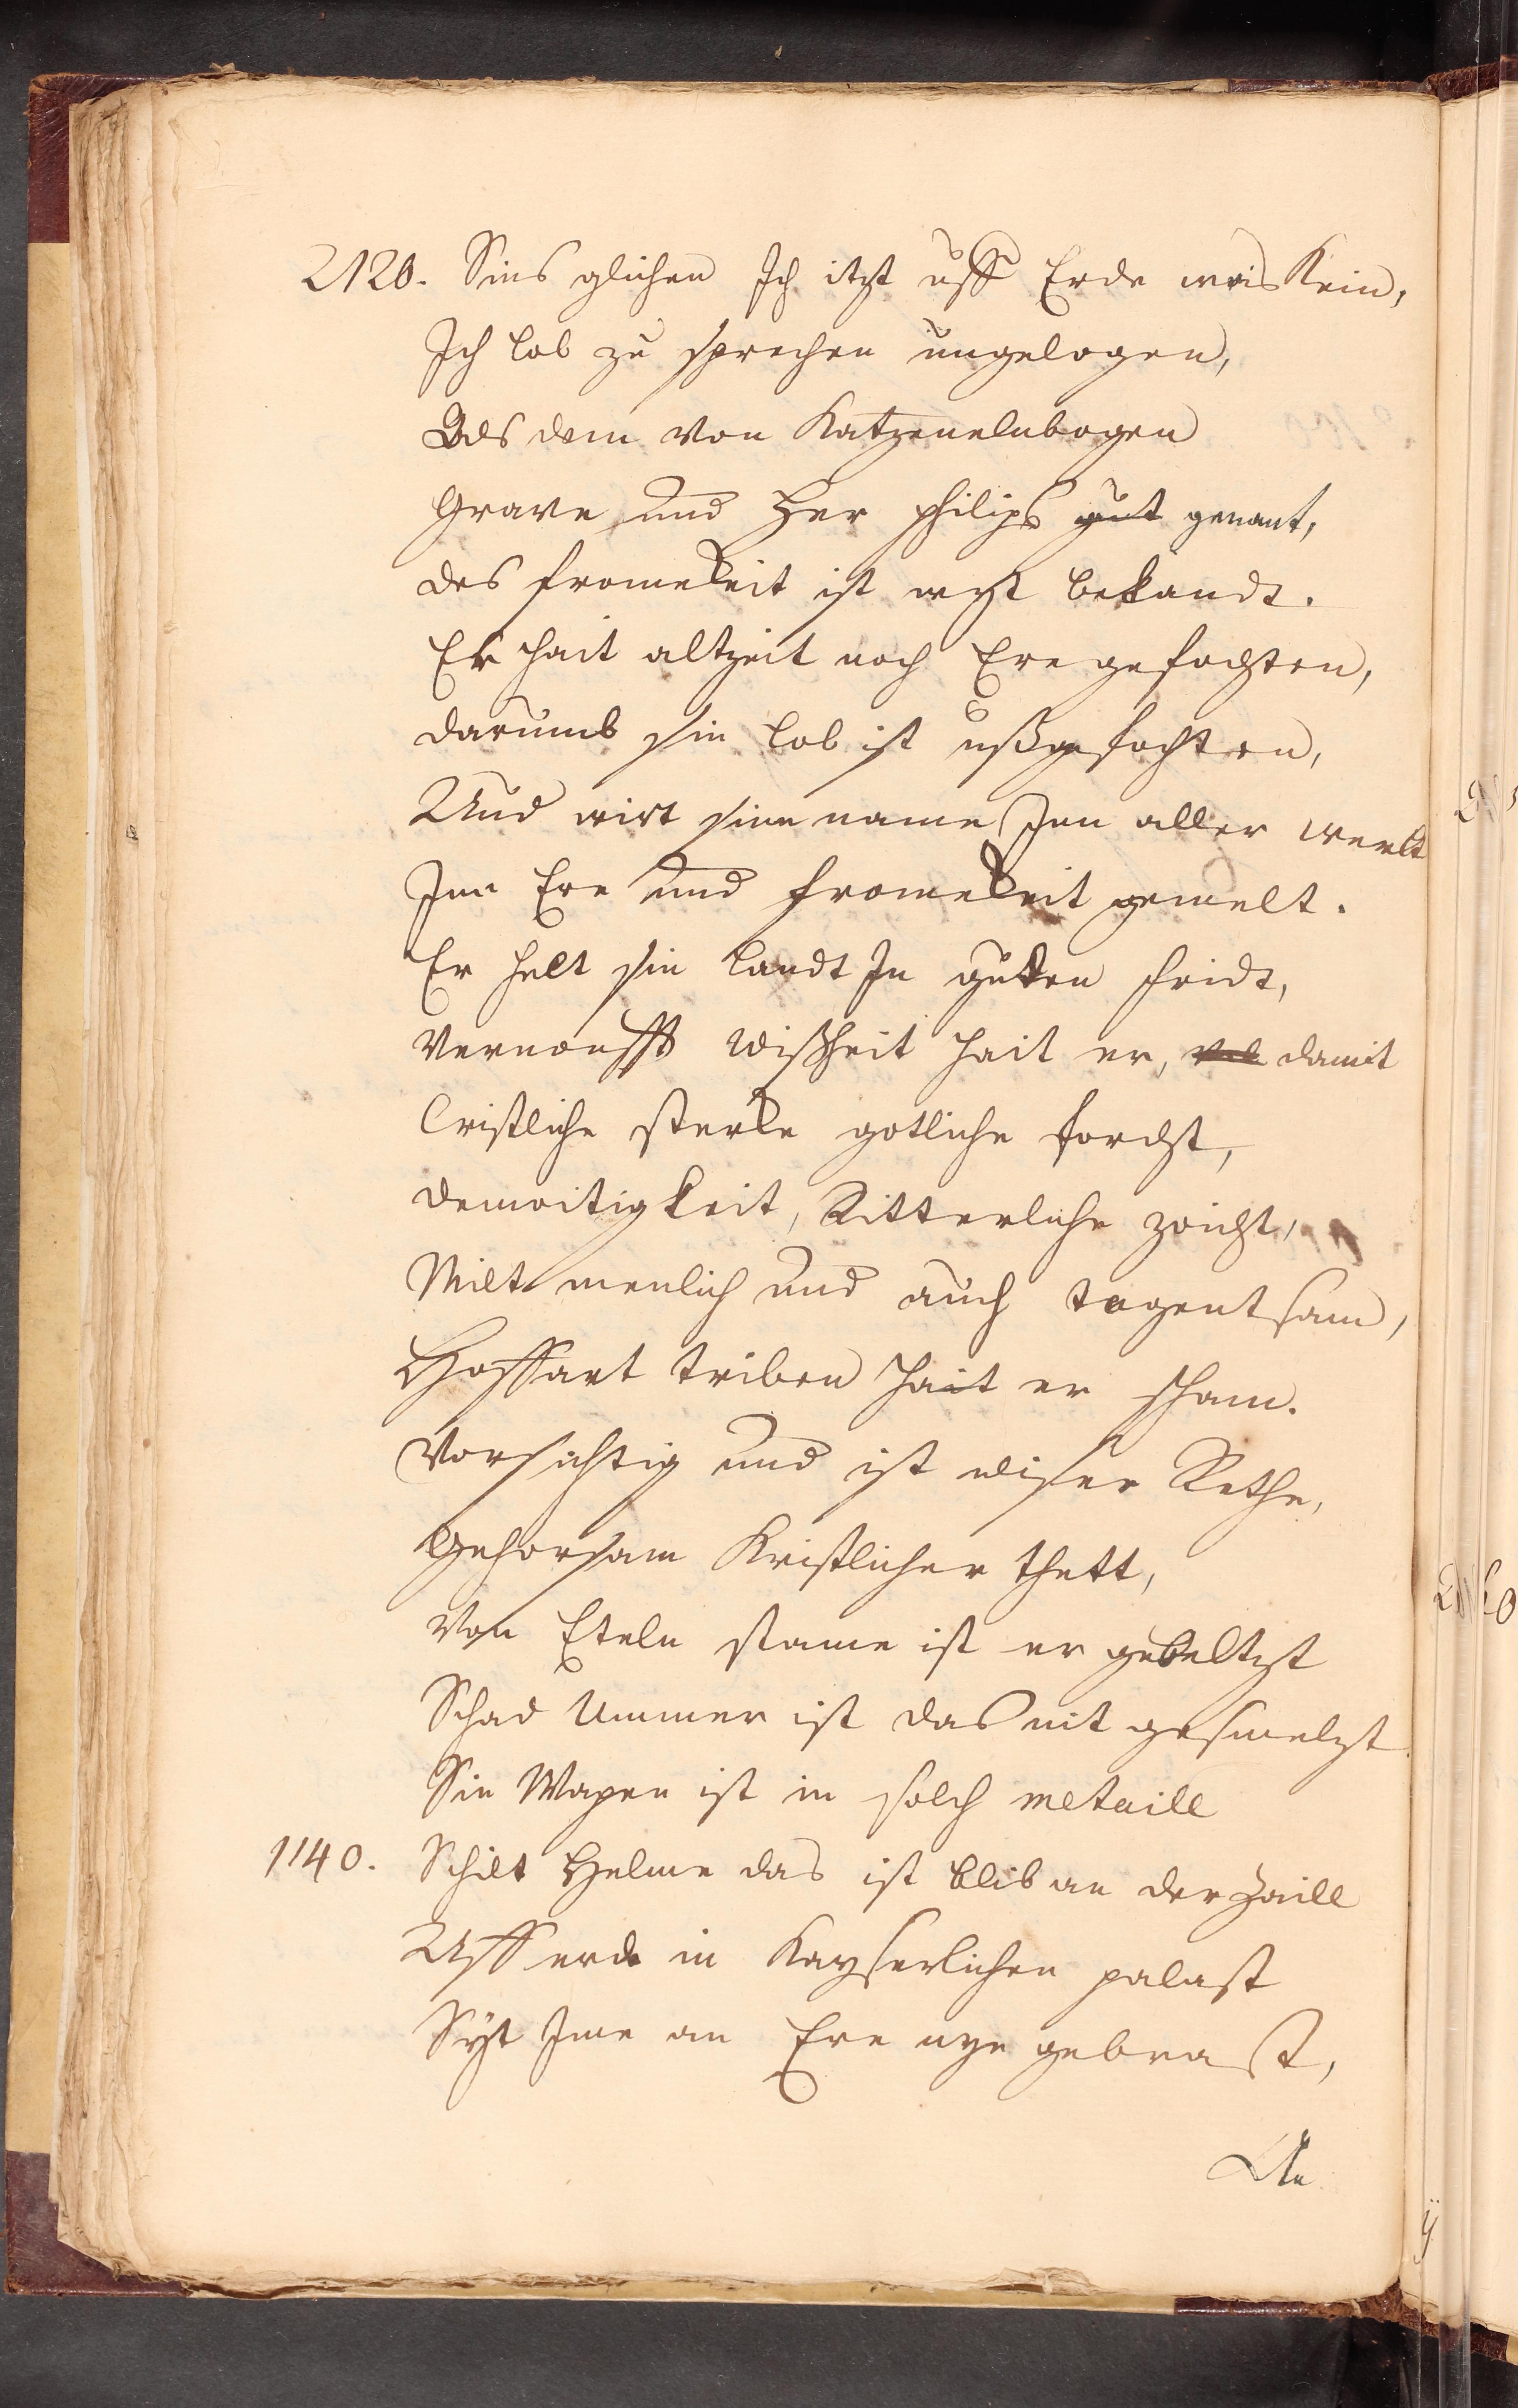 2120. Sins glichen Ich itzt uff Erde weis Kein,
Ich lob zu sprechen ungelogen,
Als dem von Katzenelnbogen
Grave und Her philips gut genant,
des fromekeit ist wyt bekandt.
Er hait altzeit noch Ere gefochten,
darumb sin lob ist ußgefochten,
Und wirt sine name Inn aller werlt
Inn Ere und fromekeit gemelt.
Er helt sin landt In guten fridt,
Vernonfft wißheit hait er, damit
Cristliche sterke gotliche forcht,
demoitigkeit, Ritterliche zoicht,
Milt menlich und auch togentsam,
Hoffart triben hait er scham.
Vorsichtig und ist wiser Rethe,
Gehorsam Kristlicher thett,
Von Eteln stame ist er gebeltzt
Schad Ummer ist das nit gesmelzt
Sin Wapen ist in solch metaill
1140. Schilt Helme das ist blib an der zaill
Uff erde in Kayserlichen palast
Syt Ime an Ere nye gebrast,
An